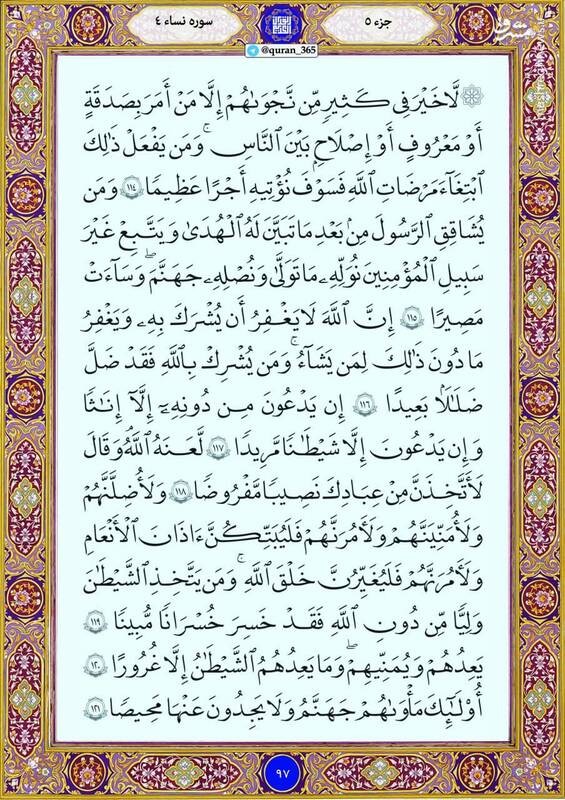 جزء ۵
سوره نساء ٤
@quran_365
لَّا خَيْرَ فِى كَثِيرٍ مِّن نَّجْوَىٰهُمْ إِلَّا مَنْ أَمَرَ بِصَدَقَةٍ
أَوْ مَعْرُوفٍ أَوْ إِصْلَٰحٍۭ بَيْنَ ٱلنَّاسِ ۚ وَمَن يَفْعَلْ ذَٰلِكَ
ٱبْتِغَآءَ مَرْضَاتِ ٱللَّهِ فَسَوْفَ نُؤْتِيهِ أَجْرًا عَظِيمًا ١١٤ وَمَن
يُشَاقِقِ ٱلرَّسُولَ مِنۢ بَعْدِ مَا تَبَيَّنَ لَهُ ٱلْهُدَىٰ وَيَتَّبِعْ غَيْرَ
سَبِيلِ ٱلْمُؤْمِنِينَ نُوَلِّهِۦ مَا تَوَلَّىٰ وَنُصْلِهِۦ جَهَنَّمَ ۖ وَسَآءَتْ
مَصِيرًا ١١٥ إِنَّ ٱللَّهَ لَا يَغْفِرُ أَن يُشْرَكَ بِهِۦ وَيَغْفِرُ
مَا دُونَ ذَٰلِكَ لِمَن يَشَآءُ ۚ وَمَن يُشْرِكْ بِٱللَّهِ فَقَدْ ضَلَّ
ضَلَٰلًۢا بَعِيدًا ١١٦ إِن يَدْعُونَ مِن دُونِهِۦٓ إِلَّآ إِنَٰثًا
وَإِن يَدْعُونَ إِلَّا شَيْطَٰنًا مَّرِيدًا ١١٧ لَّعَنَهُ ٱللَّهُ ۘ وَقَالَ
لَأَتَّخِذَنَّ مِنْ عِبَادِكَ نَصِيبًا مَّفْرُوضًا ١١٨ وَلَأُضِلَّنَّهُمْ
وَلَأُمَنِّيَنَّهُمْ وَلَءَامُرَنَّهُمْ فَلَيُبَتِّكُنَّ ءَاذَانَ ٱلْأَنْعَٰمِ
وَلَءَامُرَنَّهُمْ فَلَيُغَيِّرُنَّ خَلْقَ ٱللَّهِ ۚ وَمَن يَتَّخِذِ ٱلشَّيْطَٰنَ
وَلِيًّا مِّن دُونِ ٱللَّهِ فَقَدْ خَسِرَ خُسْرَانًا مُّبِينًا ١١٩
يَعِدُهُمْ وَيُمَنِّيهِمْ ۖ وَمَا يَعِدُهُمُ ٱلشَّيْطَٰنُ إِلَّا غُرُورًا ١٢٠
أُو۟لَٰٓئِكَ مَأْوَىٰهُمْ جَهَنَّمُ وَلَا يَجِدُونَ عَنْهَا مَحِيصًا ١٢١
٩٧